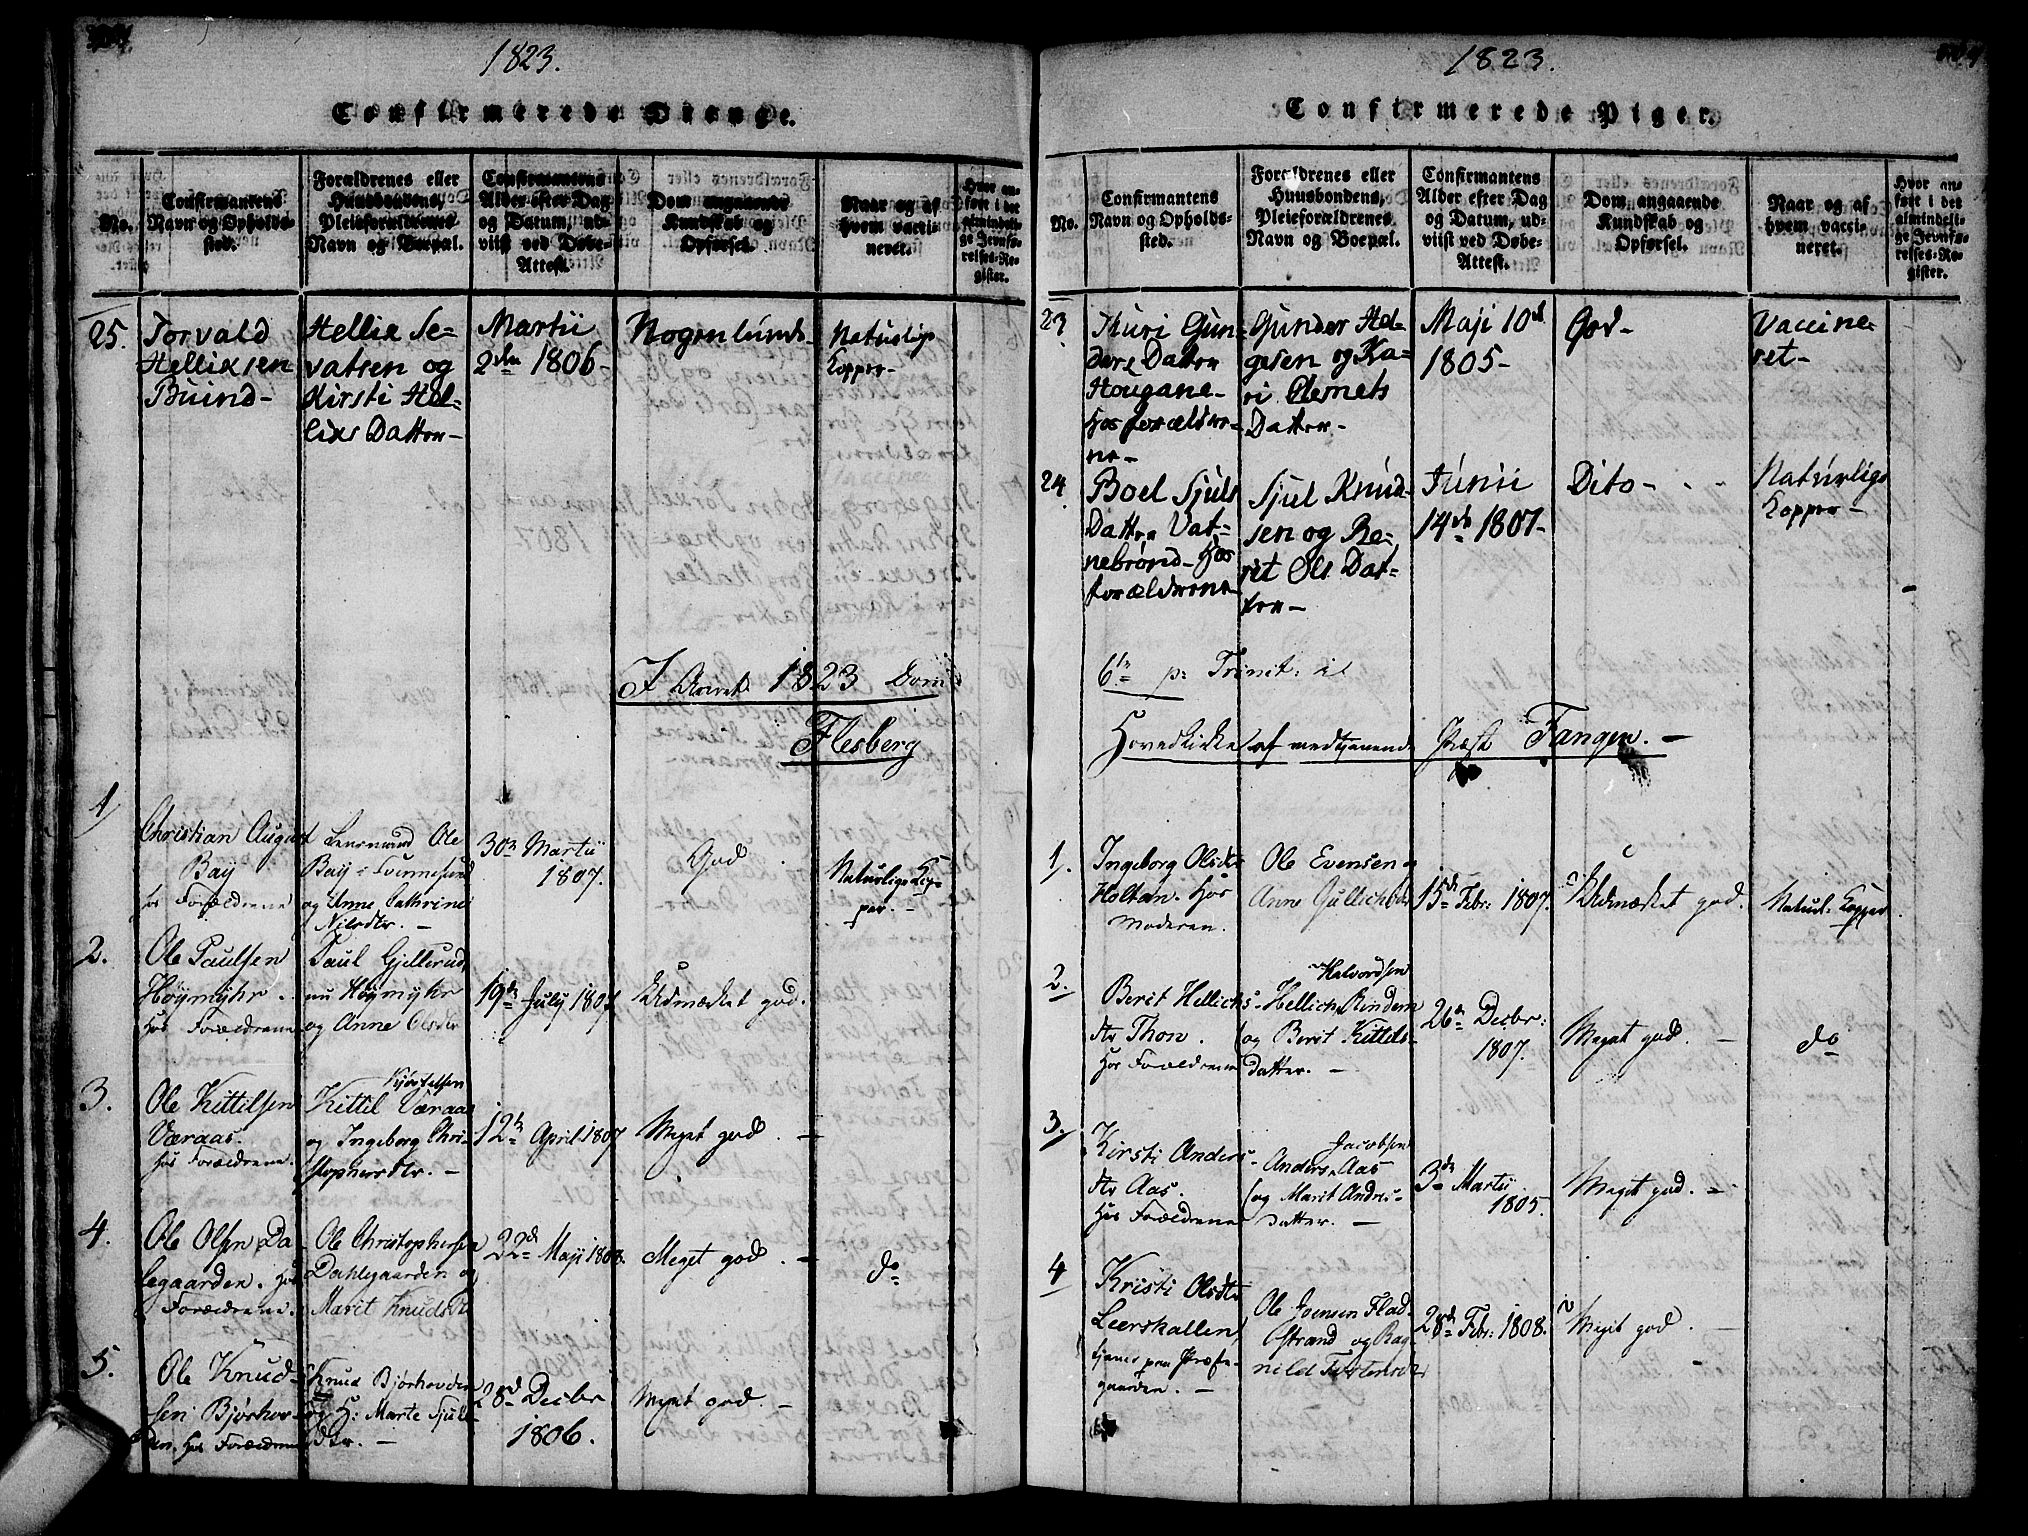 1823.
Confirmerede Drenge.
No.
Confirmantens
Navn og Opholds-
sted.
Forældrenes eller
Huusbondens,
Pleieforældrenes
Navn og Boepæl.
Confirmantens
Alder efter Dag
og Datum, ud-
viist ved Døbe-
Attest.
Dom angaaende
Kundskab og
Opførsel.
Naar og af
hvem vacci-
neret.
Hvor an-
ført i det
almindeli-
ge Jevnfø-
relses-Re-
gister.
25.
Torvald
Hellixsen
Buind-
Hellix Se-
vatsen og
Kirsti Hel-
lixs Datter-
Martii
2den 1806-
Nogenlunde
Naturlige
Kopper-
I Aaret 1823 Dom:
Flesberg
1
Christian August
Bay
hos Forældrene
Lensmand Ole
Bay
og Anne Cathrine
Nilsdtr. -
30te Martii
1807.
God
Naturlige Kop-
per. -
2.
Ole Paulsen
Høymyhr.
hos Forældrene
Paul Gjellerud,
nu Høymyhr
og Anne Olsdtr
19de July 1807
Udmærket god.
3.
Ole Kittilsen
Væraas.
hos Forældrene.
Kittil Væraas
og Ingeborg Chri-
stophersdtr. -
12te April 1807
Meget god. -
4.
Ole Olsen Da-
legaarden. hos
Forældrene.
Ole Christophersen
Dahlegaarden og
Marit Knudsdtr
22de Maji 1808.
Meget god. -
do
5.
Ole Knud-
sen Bjørhov-
den. hos Forældrene
Knud Bjørhovden
og H: Marte Sjuls-
dtr. -
28de Decbr
1806.
Meget god. -
1823.
Confirmerede Piger.
No.
Confirmantens
Navn og Opholds-
sted.
Forældrenes eller
Huusbondens,
Pleieforældrenes
Navn og Boepæl.
Confirmantens
Alder efter Dag
og Datum, ud-
viist ved Døbe-
Attest.
Dom, angaaende
Kundskab og
Opførsel.
Naar og af
hvem vacci-
neret.
Hvor an-
ført i det
almindeli-
ge Jevnfø-
relses-Re-
gister.
23
Thuri Gun-
ders Datter
Hougane-
hos forældre-
ne-
Gunder Hel-
gesen og Ka-
ri Clemets
Datter-
Maji 10de
1805-
God-
Vaccine-
ret-
24.
Boel Sjuls
Datter Vat-
nebrønd- hos
forældrene-
Sjul Knud-
sen og Be-
rit Ols Dat-
ter-
Junii
14de 1807-
Dito- - -
Naturlige
Kopper-
6te p: Trinit: i
Hovedkirken af medtjenende Præst Fangen. -
1.
Ingeborg Olsdtr
Holtan. hos
Moderen.
Ole Evensen og
Anne Gullichsdtr
15de Febr: 1807.
Udmærket god.
Naturl: Kopper.
2.
Berit Hellichs-
dtr Thon.
hos Forældrene
Halvordsen
Hellich Rindem
og Berit Kittels-
datter. -
26de Decbr:
1807.
Meget god. -
do
3.
Kirsti Anders-
dtr Aas.
hos Forældrene
Jacobsen
Anders Aas
og Marit Anders-
datter. -
3de Martii
1805.
Meget god. -
4
Kristi Olsdtr
Leerskallen,
tjener paa Præste-
gaarden. -
Ole Joensen Flad-
strand og Rag-
nild
28de Febr: 1808.
Meget god -